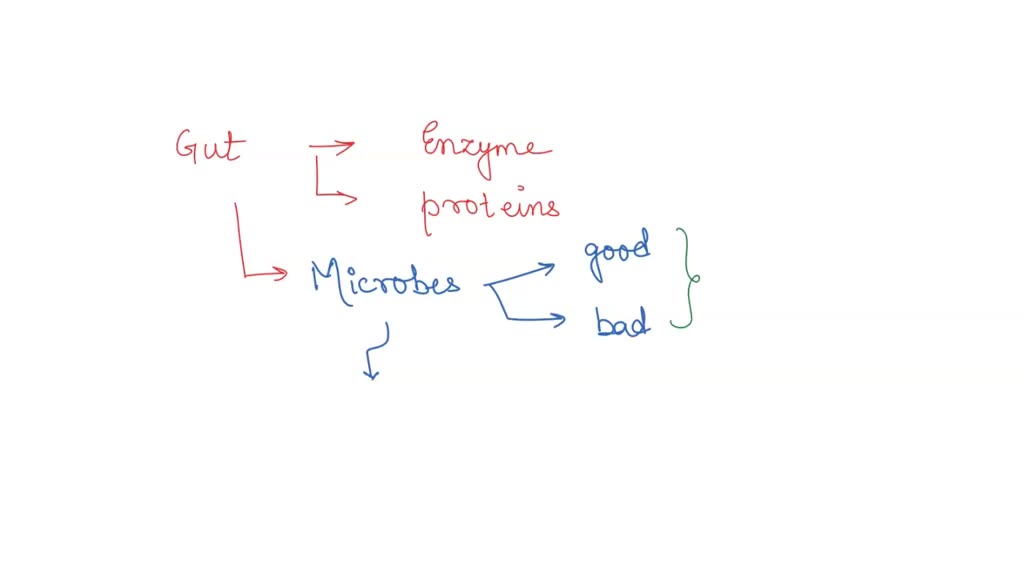 Gut Enzyme
proteins
Microbes good
bad